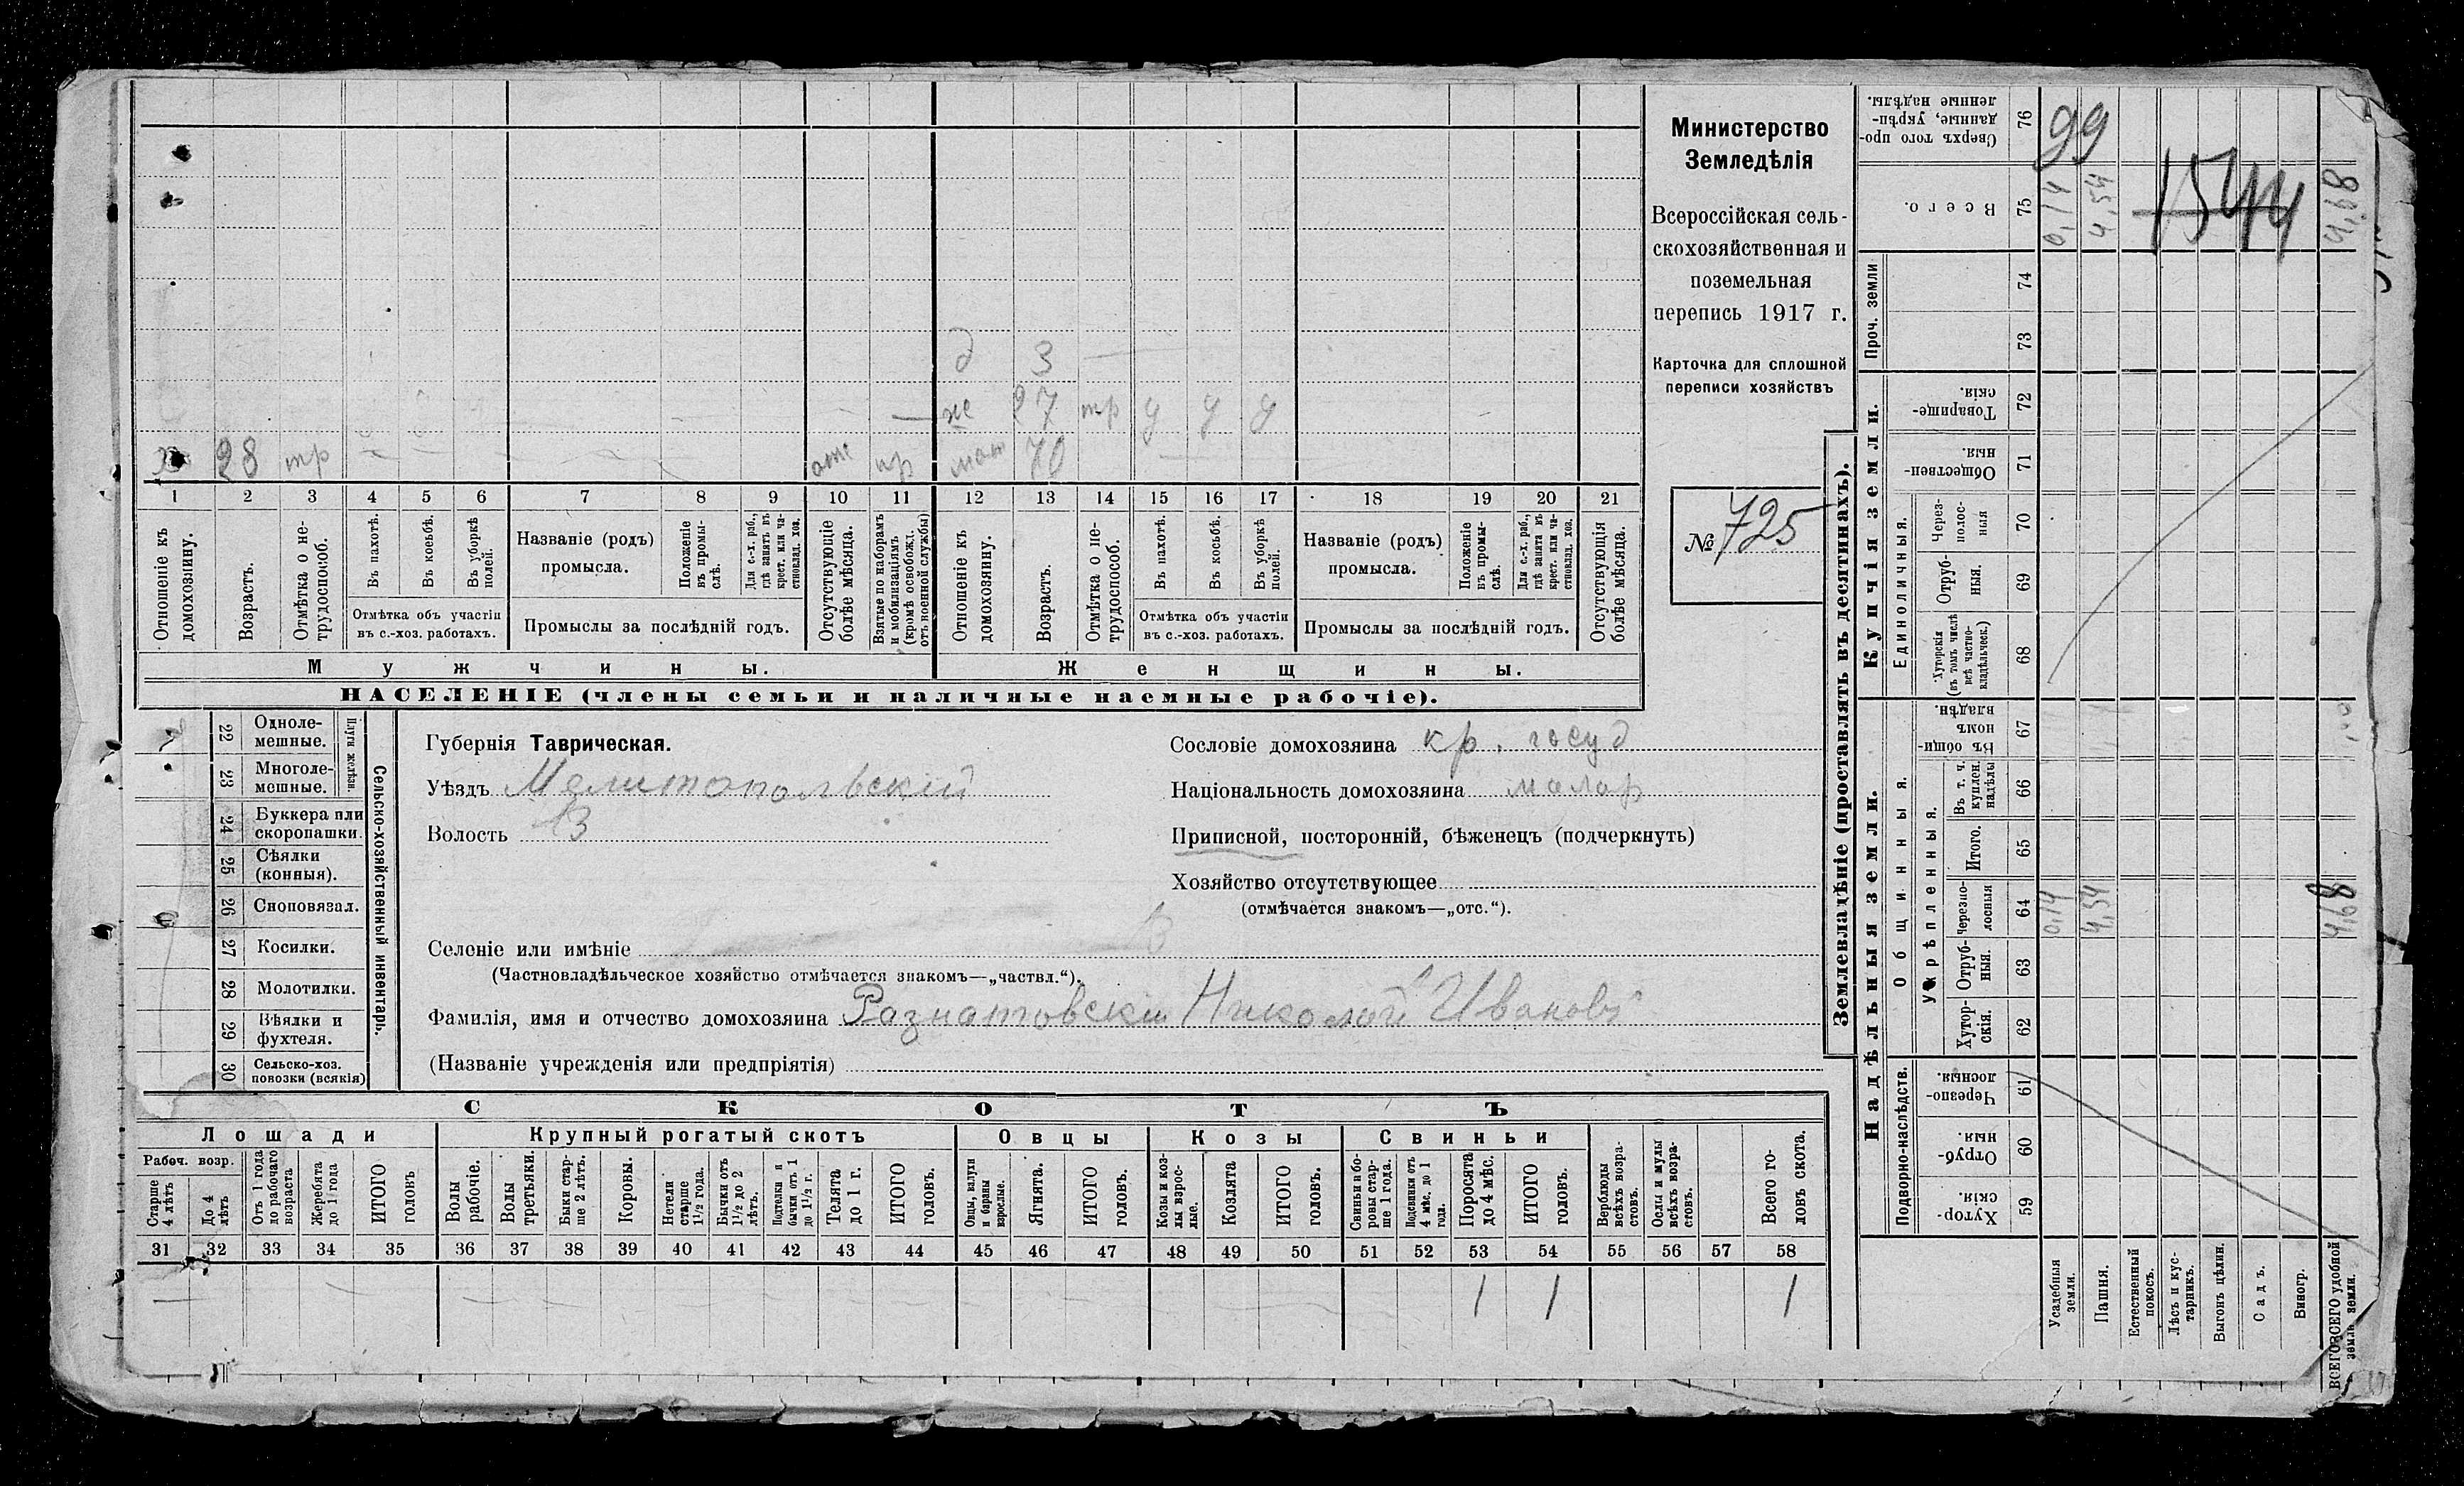 Министерство
Земледѣлія
Всероссійская сель-
скохозяйственная и
поземельная
перепись 1917 г.
Карточка для сплошной
переписи хозяйствъ
№ 725
д 3
же 27 тр у у у
х 28 тр отс пр мат 70
1 2 3 4 5 6 7 8 9 10 11 12 13 14 15 16 17 18 19 20 21
Отношеніе къ домохозяину.
Возрастъ.
Отмѣтка о не-трудоспособ.
Въ пахотѣ.
Въ косьбѣ.
Въ уборкѣ полей.
Отмѣтка объ участіи
въ с.-хоз. работахъ.
Названіе (родъ)
промысла.
Положеніе въ промы-слѣ.
Для с.-х. раб., гдѣ занятъ въ крест. или ча-стновлад. хоз.
Промыслы за послѣдній годъ.
Отсутствующіе болѣе мѣсяца.
Взятые по наборамъ и мобилизаціямъ (кромѣ освобожд. отъ военной службы)
Отношеніе къ домохозяину.
Возрастъ.
Отмѣтка о не-трудоспособ.
Въ пахотѣ.
Въ косьбѣ.
Въ уборкѣ полей.
Отмѣтка объ участіи
въ с.-хоз. работахъ.
Названіе (родъ)
промысла.
Положеніе въ промы-слѣ.
Для с.-х. раб., гдѣ занята въ крест. или ча-стновлад. хоз.
Промыслы за послѣдній годъ.
Отсутствующія болѣе мѣсяца.
Мужчины.
Женщины.
НАСЕЛЕНІЕ (члены семьи и наличные наемные рабочіе).
22 Одноле-мешные.
23 Многоле-мешные.
Плуги желѣзн.
24 Буккера или скоропашки.
25 Сѣялки (конныя).
26 Сноповязал.
27 Косилки.
28 Молотилки.
29 Вѣялки и фухтеля.
30 Сельско-хоз. повозки (всякія)
Сельско-хозяйственный инвентарь.
Губернія Таврическая.
Уѣздъ Мелитопольскій
Волость В
Сословіе домохозяина кр. госуд
Національность домохозяина малор
Приписной, посторонній, бѣженецъ (подчеркнуть)
Хозяйство отсутствующее
(отмѣчается знакомъ—„отс.“).
Селеніе или имѣніе В
(Частновладѣльческое хозяйство отмѣчается знакомъ—„частвл.“).
Фамилія, имя и отчество домохозяина Разнатовскій Николай Ивановъ
(Названіе учрежденія или предпріятія)
СКОТЪ
Лошади
Крупный рогатый скотъ
Овцы
Козы
Свиньи
Рабоч. возр.
Старше 4 лѣтъ
До 4 лѣтъ
Отъ 1 года до рабочаго возраста
Жеребята до 1 года
ИТОГО головъ
Волы рабочіе.
Волы третьяки.
Быки стар-ше 2 лѣтъ.
Коровы.
Нетели старше 1½ года.
Бычки отъ 1½ до 2 лѣтъ.
Подтелки и бычки отъ 1 до 1½ г.
Телята до 1 г.
ИТОГО головъ.
Овцы, валухи и бараны взрослые.
Ягнята.
ИТОГО головъ.
Козы и коз-лы взрос-лые.
Козлята
ИТОГО головъ.
Свиньи и бо-ровы стар-ше 1 года.
Подсвинки отъ 4 мѣс. до 1 года.
Поросята до 4 мѣс.
ИТОГО головъ.
Верблюды всѣхъ возра-стовъ.
Ослы и мулы всѣхъ возра-стовъ.
Всего го-ловъ скота.
31 32 33 34 35 36 37 38 39 40 41 42 43 44 45 46 47 48 49 50 51 52 53 54 55 56 57 58
1 1 1
Землевладѣніе (проставлять въ десятинахъ).
Надѣльныя земли.
Купчія земли.
Проч. земли
Подворно-наслѣдств.
Общинныя.
Укрѣпленныя.
Единоличныя.
Хутор-скія. 59
Отруб-ныя. 60
Черезпо-лосныя. 61
Хутор-скія. 62
Отруб-ныя. 63
Черезпо-лосныя 64
Итого. 65
Въ т. ч. куплен. надѣлы 66
Въ общин-номъ владѣн. 67
Хуторскія (въ томъ числѣ всѣ частно-владѣльческ.) 68
Отруб-ныя. 69
Через-полос-ныя 70
Обществен-ныя. 71
Товарище-скія. 72
73
74
Всего. 75
Сверхъ того про-данные, укрѣп-ленные надѣлы. 76
Усадебныя земли. 0,14 0,14
Пашня. 4,54 4,54
Естественный покосъ.
Лѣсъ и кус-тарникъ.
Выгонъ цѣлин.
Садъ.
Виногр.
ВСЕГО удобной земли. 4,68 4,68
99
1544